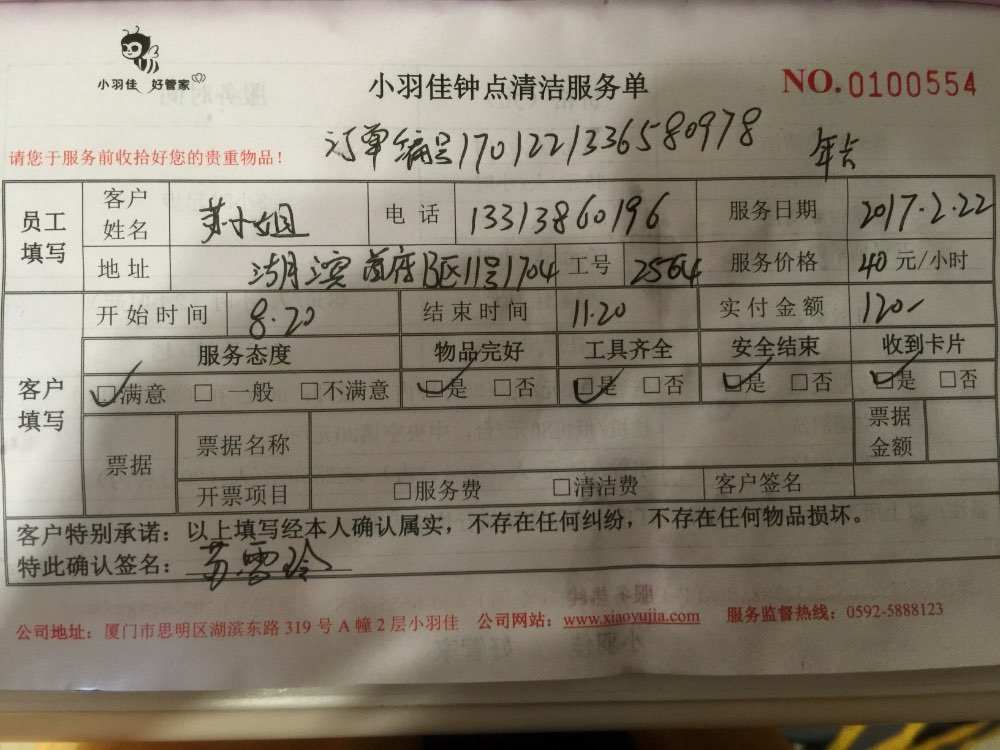 小羽佳 好管家
小羽佳钟点清洁服务单
NO.0100554
订单编号170122133658​0978 年卡
请您于服务前收拾好您的贵重物品！
员工填写 客户姓名 苏小姐 电话 13313860196 服务日期 2017.2.22
地址 湖滨首府B区11号1704 工号 2564 服务价格 40元/小时
客户填写 开始时间 8.20 结束时间 11.20 实付金额 120-
服务态度 物品完好 工具齐全 安全结束 收到卡片
☑满意 □一般 □不满意 ☑是 □否 ☑是 □否 ☑是 □否 ☑是 □否
票据 票据名称 票据金额
开票项目 □服务费 □清洁费 客户签名
客户特别承诺：以上填写经本人确认属实，不存在任何纠纷，不存在任何物品损坏。
特此确认签名：苏雪玲
公司地址：厦门市思明区湖滨东路319号A幢2层小羽佳 公司网站：www.xiaoyujia.com 服务监督热线：0592-5888123